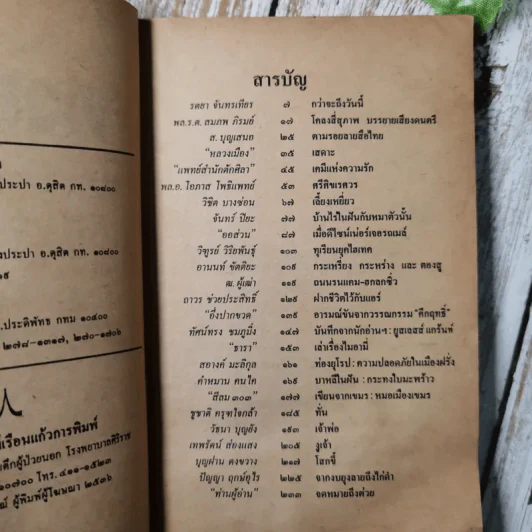 ประปา อ.ดุสิต กท. ๑๐๔๐๐
ประปา อ.ดุสิต กท. ๑๐๘๐๐
ถ.ประดิพัทธ กทม ๑๐๔๐๐
๒๗๘-๑๓๑๗, ๒๗๐-๑๗๐๖
เรือนแก้วการพิมพ์
ตึกผู้ป่วยนอก โรงพยาบาลศิริราช
๑๐๗๐๐ โทร. ๔๑๑-๑๕๒๓
ผู้พิมพ์ผู้โฆษณา ๒๕๓๖
สารบัญ
รตยา จันทรเทียร ๗ กว่าจะถึงวันนี้
พล.ร.ต. สมภพ ภิรมย์ ๑๗ โคลงสี่สุภาพ บรรยายเสียงดนตรี
ส. บุญเสนอ ๒๕ ตามรอยลายสือไทย
"หลวงเมือง" ๓๕ เสดาะ
"แพทย์สำนักตักศิลา" ๔๕ เคมีแห่งความรัก
พล.อ. โอภาส โพธิแพทย์ ๕๓ ตรีศิขเรศวร
วิชิต บางซ่อน ๖๗ เลี้ยงเหยี่ยว
จันทร์ ปิยะ ๗๗ บ้านไร่ในฝันกับหมาตัวนั้น
"ออส่วน" ๘๗ เมื่อดีไซน์เนอร์เจอรถเมล์
วิฑูรย์ วิริยพันธุ์ ๑๐๓ ทุเรียนยุคไฮเทค
อานนท์ ขัตติยะ ๑๐๙ กระเหรี่ยง กระหร่าง และ ตองสู
ฒ.ผู้เฒ่า ๑๑๙ ถนนรนแคม-ฮกลกซิ่ว
ถาวร ช่วยประสิทธิ์ ๑๒๙ ฝากชีวิตไว้กับแอร์
"อึ่งปากขวด" ๑๓๙ อารมณ์ขันจากวรรณกรรม "คึกฤทธิ์"
ทัศน์ทรง ชมภูมิ่ง ๑๔๗ บันทึกจากนักอ่านฯ : ยูสเลสส์ แกรันท์
"ธารา" ๑๕๓ เล่าเรื่องไมอามี่
สอางค์ มะลิกุล ๑๖๑ ท่องยุโรป : ความปลอดภัยในเมืองฝรั่ง
คำหมาน คนไค ๑๖๙ บาหลีในฝัน : กระทงใบมะพร้าว
"สีลม ๓๐๓" ๑๗๗ เขียนจากเขมร : หมอเมืองเขมร
ชูชาติ ครุฑใจกล้า ๑๘๕ ทั่น
วัธนา บุญยัง ๑๙๓ เจ้าพ่อ
เทพรัตน์ ส่องแสง ๒๐๕ งูเจ้า
บุญผ่าน คงขวาง ๒๑๗ โสกขี้
ปัญญา ฤกษ์อุไร ๒๒๕ จากงบยุงลายถึงไก่ดำ
"ท่านผู้อ่าน" ๒๓๓ จดหมายถึงต่วย